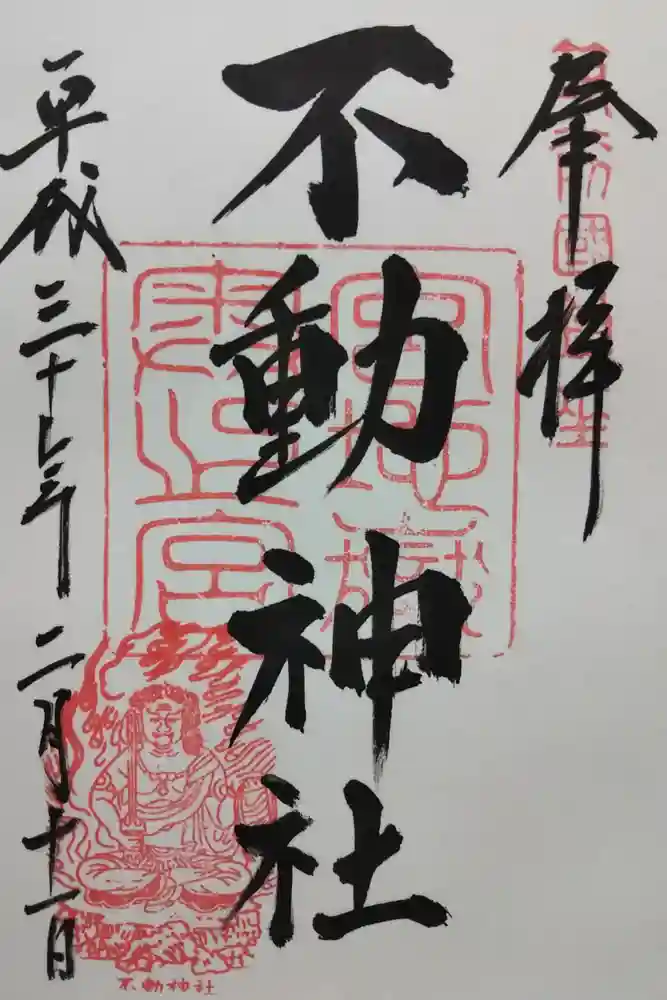 奉拝
不動神社
平成三十年二月十一日
宮地嶽
不動神社